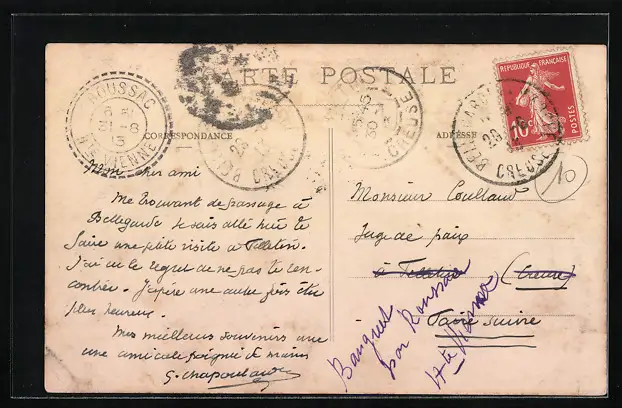 CARTE POSTALE
CORRESPONDANCE
ADRESSE
ROUSSAC
Hte VIENNE
13
CREUSE
CREUSE
REPUBLIQUE FRANÇAISE
10c
POSTES
10
Mon cher ami
Me trouvant de passage à
Bellegarde je suis allé hier te
faire une petite visite à Felletin.
J'ai eu le regret de ne pas te ren-
contrer. J'espère une autre fois être
plus heureux.
Mes meilleurs souvenirs avec
une amicale poignée de mains
G. Chapoulaud
Monsieur Coullaud
Juge de paix
à Felletin (Creuse)
Faire suivre
Banques
par Roussac
Hte Vienne